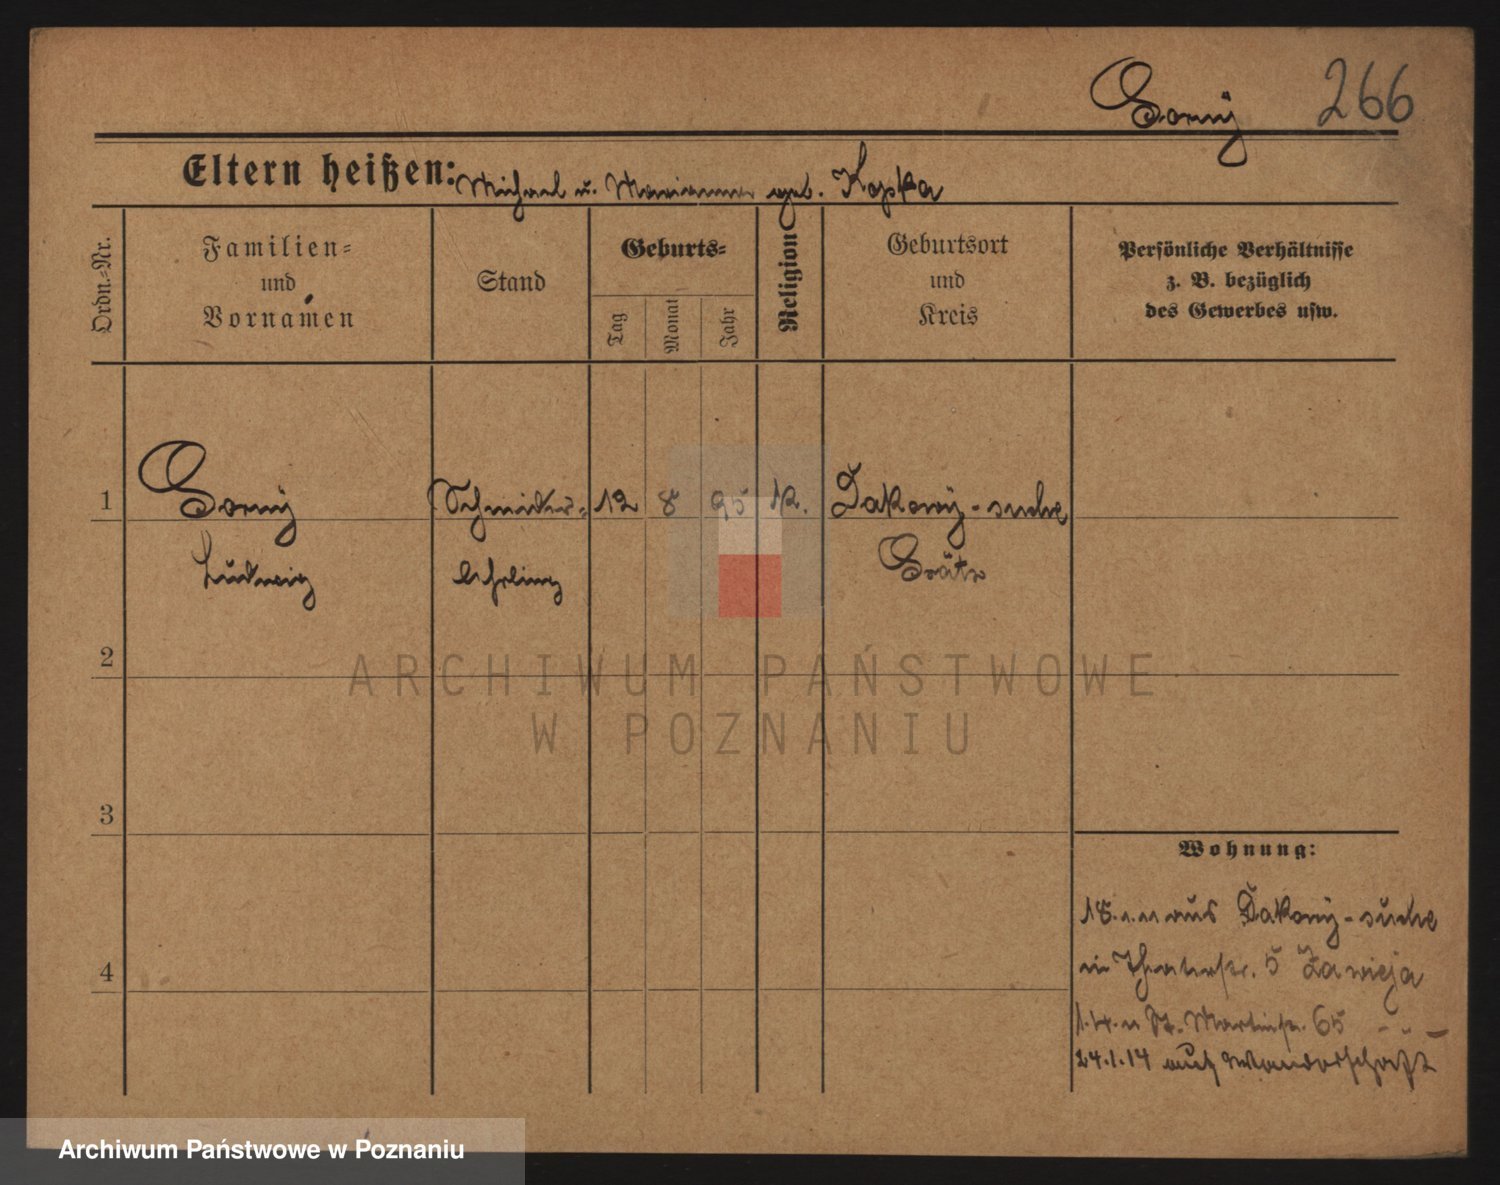 Gorny 266
Eltern heißen: Michael u. Marianna geb. Kopka
Ordn.-Nr.
Familien-
und
Vornamen
Stand
Geburts-
Tag
Monat
Jahr
Religion
Geburtsort
und
Kreis
Persönliche Verhältnisse
z. B. bezüglich
des Gewerbes usw.
1 Gorny Schneider- 12 8 95 k. Dakowy-suche
Ludwig lehrling Grätz
2
3
4
Wohnung:
18.1.11 aus Dakowy-suche
in Theaterstr. 5 Zawieja
1.4.11 St. Martinstr. 65 - " -
24.1.14 auf Wanderschaft
ARCHIWUM PAŃSTWOWE
W POZNANIU
Archiwum Państwowe w Poznaniu